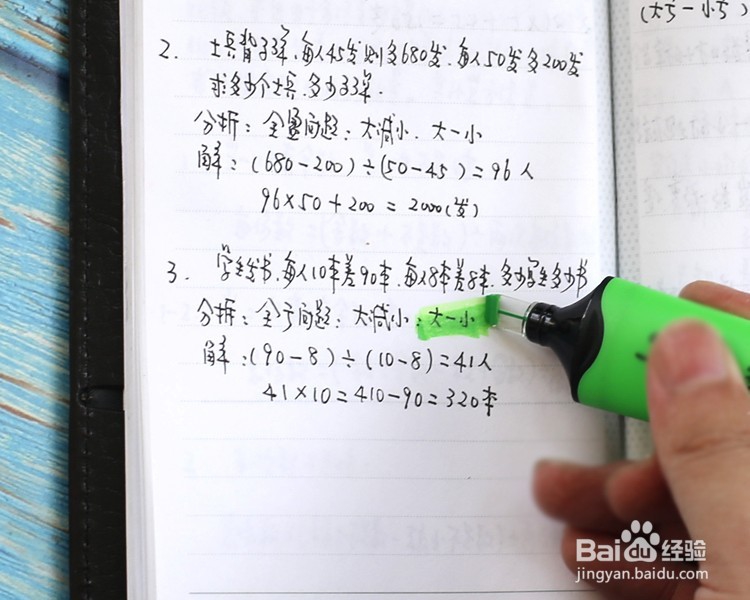 (大亏-小亏)
2. 士兵背子弹,每人45发则多680发,每人50发多200发
求多少个士兵,多少子弹.
分析:全盈问题:大减小.大-小
解:(680-200)÷(50-45)=96人
96×50+200=2000(发)
3. 学生发书,每人10本差90本,每人8本差8本,多少学生多少书
分析:全亏问题:大减小:大-小
解:(90-8)÷(10-8)=41人
41×10=410-90=320本
Baidu经验
jingyan.baidu.com